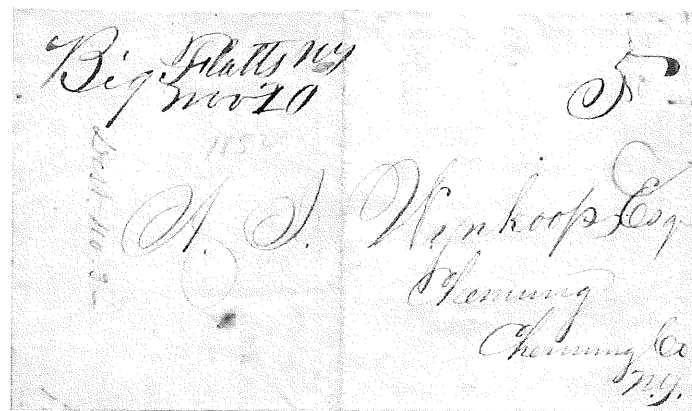 Big Flatts NY
Nov 20
5
1852
A. I. Wynkoop, Esq
Chemung
Chemung Co
N.Y.